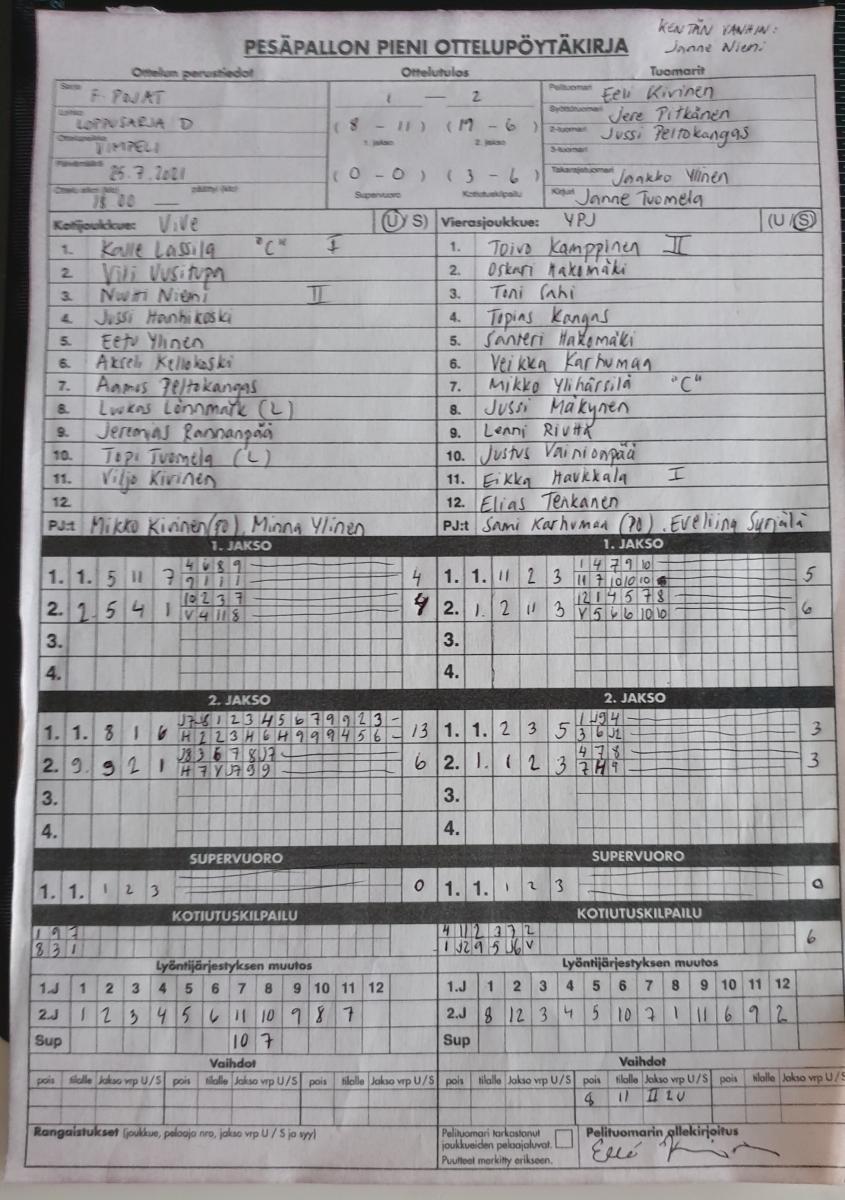 KENTÄN VANHIN:
Janne Niemi
PESÄPALLON PIENI OTTELUPÖYTÄKIRJA
Ottelun perustiedot Ottelutulos Tuomarit
Sarja F-POJAT 1 — 2 Pelituomari Eeli Kivinen
Lohko LOPPUSARJA D (8 - 11) (19 - 6) Syöttötuomari Jere Pitkänen
Ottelupaikka VIMPELI 1. jakso 2. jakso 2-tuomari Jussi Peltokangas
3-tuomari
Päivämäärä 25.7.2021 (0 - 0) (3 - 6) Takarajatuomari Jaakko Ylinen
Ottelu alkoi (klo) 18.00 päättyi (klo) — Supervuoro Kotiutuskilpailu Kirjuri Janne Tuomela
Kotijoukkue: ViVe (U/S) Vierasjoukkue: YPJ (U/S)
1. Kalle Lassila "C" I 1. Toivo Kamppinen II
2. Vili Uusitupa 2. Oskari Hakomäki
3. Nuutti Niemi II 3. Toni Sahi
4. Jussi Hanhikoski 4. Topias Kangas
5. Eetu Ylinen 5. Santeri Hakomäki
6. Akseli Kellokoski 6. Veikka Karhumaa
7. Aamos Peltokangas 7. Mikko Ylihärsilä "C"
8. Luukas Lönnmark (L) 8. Jussi Mäkynen
9. Jeremias Rannanpää 9. Lenni Riutta
10. Topi Tuomela (L) 10. Justus Vainionpää
11. Viljo Kivinen 11. Eikka Haukkala I
12. 12. Elias Tenkanen
PJ:t Mikko Kivinen (PO), Minna Ylinen PJ:t Sami Karhumaa (PO), Eveliina Syrjälä
1. JAKSO 1. JAKSO
4 6 8 9 1 4 7 9 10
1. 1. 5 11 7 4 1. 1. 11 2 3 5
9 1 1 1 11 7 10 10 10
10 2 3 7 12 1 4 5 7 8
2. 2. 5 4 1 4 2. 1. 2 11 3 6
V 4 11 8 V 5 6 6 10 10
3. 3.
4. 4.
2. JAKSO 2. JAKSO
J7 J8 1 2 3 4 5 6 7 9 9 2 3 1 J9 4
1. 1. 8 1 6 13 1. 1. 2 3 5 3
H 2 2 3 H 6 H 9 9 9 4 5 6 3 6 J2
J8 3 6 7 8 J7 4 7 8
2. 9. 9 2 1 6 2. 1. 1 2 3 3
H 7 V J7 9 9 7 H 9
3. 3.
4. 4.
SUPERVUORO SUPERVUORO
1. 1. 1 2 3 0 1. 1. 1 2 3 0
KOTIUTUSKILPAILU KOTIUTUSKILPAILU
1 9 7 4 11 2 3 7 2
8 3 1 1 J2 9 5 J6 V 6
Lyöntijärjestyksen muutos Lyöntijärjestyksen muutos
1.J 1 2 3 4 5 6 7 8 9 10 11 12 1.J 1 2 3 4 5 6 7 8 9 10 11 12
2.J 1 2 3 4 5 6 11 10 9 8 7 2.J 8 12 3 4 5 10 7 1 11 6 9 2
Sup 10 7 Sup
Vaihdot Vaihdot
pois tilalle Jakso vrp U/S pois tilalle Jakso vrp U/S pois tilalle Jakso vrp U/S pois tilalle Jakso vrp U/S pois tilalle Jakso vrp U/S pois tilalle Jakso vrp U/S
8 11 II 2U
Rangaistukset (joukkue, pelaaja nro, jakso vrp U / S ja syy) Pelituomari tarkastanut Pelituomarin allekirjoitus
joukkueiden pelaajaluvat.
Puutteet merkitty erikseen.